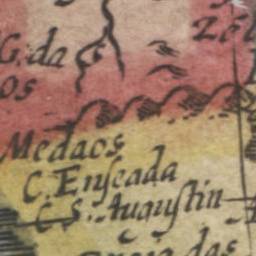 G. da
os
Medaos
C. Enseada
C. S. Augustin
das